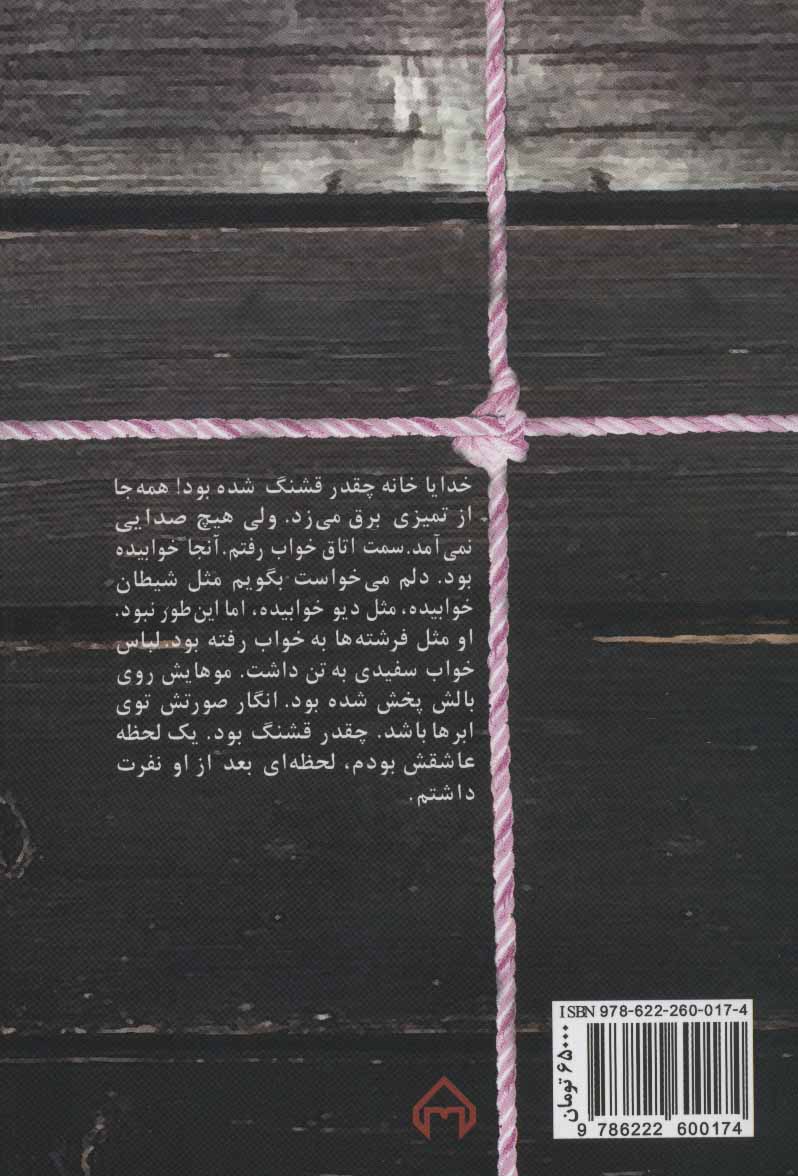 خدایا خانه چقدر قشنگ شده بود! همه‌جا
از تمیزی برق می‌زد. ولی هیچ صدایی
نمی‌آمد.سمت اتاق خواب رفتم.آنجا خوابیده
بود. دلم می‌خواست بگویم مثل شیطان
خوابیده، مثل دیو خوابیده، اما این‌طور نبود.
او مثل فرشته‌ها به خواب رفته بود.لباس
خواب سفیدی به تن داشت. موهایش روی
بالش پخش شده بود. انگار صورتش توی
ابرها باشد. چقدر قشنگ بود. یک لحظه
عاشقش بودم، لحظه‌ای بعد از او نفرت
داشتم.
ISBN 978-622-260-017-4
۶۵۰۰۰ تومان
9 786222 600174